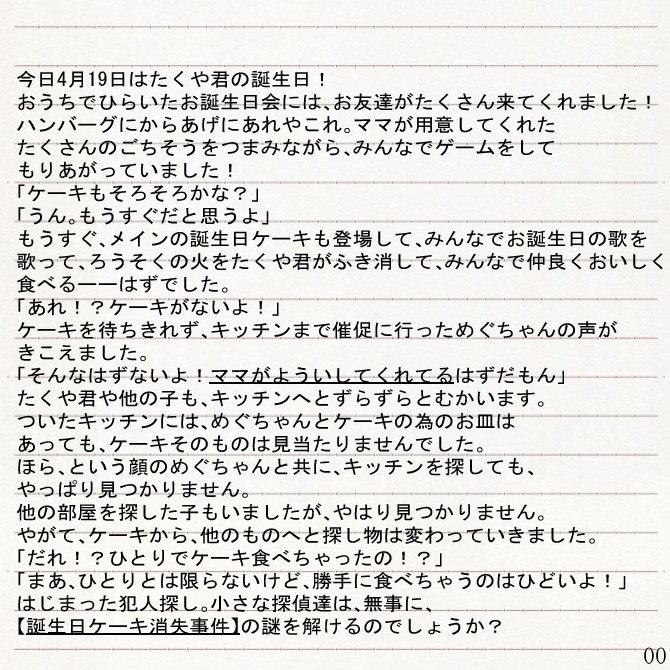 今日4月19日はたくや君の誕生日！
おうちでひらいたお誕生日会には、お友達がたくさん来てくれました！
ハンバーグにからあげにあれやこれ。ママが用意してくれた
たくさんのごちそうをつまみながら、みんなでゲームをして
もりあがっていました！
「ケーキもそろそろかな？」
「うん。もうすぐだと思うよ」
もうすぐ、メインの誕生日ケーキも登場して、みんなでお誕生日の歌を
歌って、ろうそくの火をたくや君がふき消して、みんなで仲良くおいしく
食べる――はずでした。
「あれ！？ケーキがないよ！」
ケーキを待ちきれず、キッチンまで催促に行っためぐちゃんの声が
きこえました。
「そんなはずないよ！ママがよういしてくれてるはずだもん」
たくや君や他の子も、キッチンへとずらずらとむかいます。
ついたキッチンには、めぐちゃんとケーキの為のお皿は
あっても、ケーキそのものは見当たりませんでした。
ほら、という顔のめぐちゃんと共に、キッチンを探しても、
やっぱり見つかりません。
他の部屋を探した子もいましたが、やはり見つかりません。
やがて、ケーキから、他のものへと探し物は変わっていきました。
「だれ！？ひとりでケーキ食べちゃったの！？」
「まあ、ひとりとは限らないけど、勝手に食べちゃうのはひどいよ！」
はじまった犯人探し。小さな探偵達は、無事に、
【誕生日ケーキ消失事件】の謎を解けるのでしょうか？
00